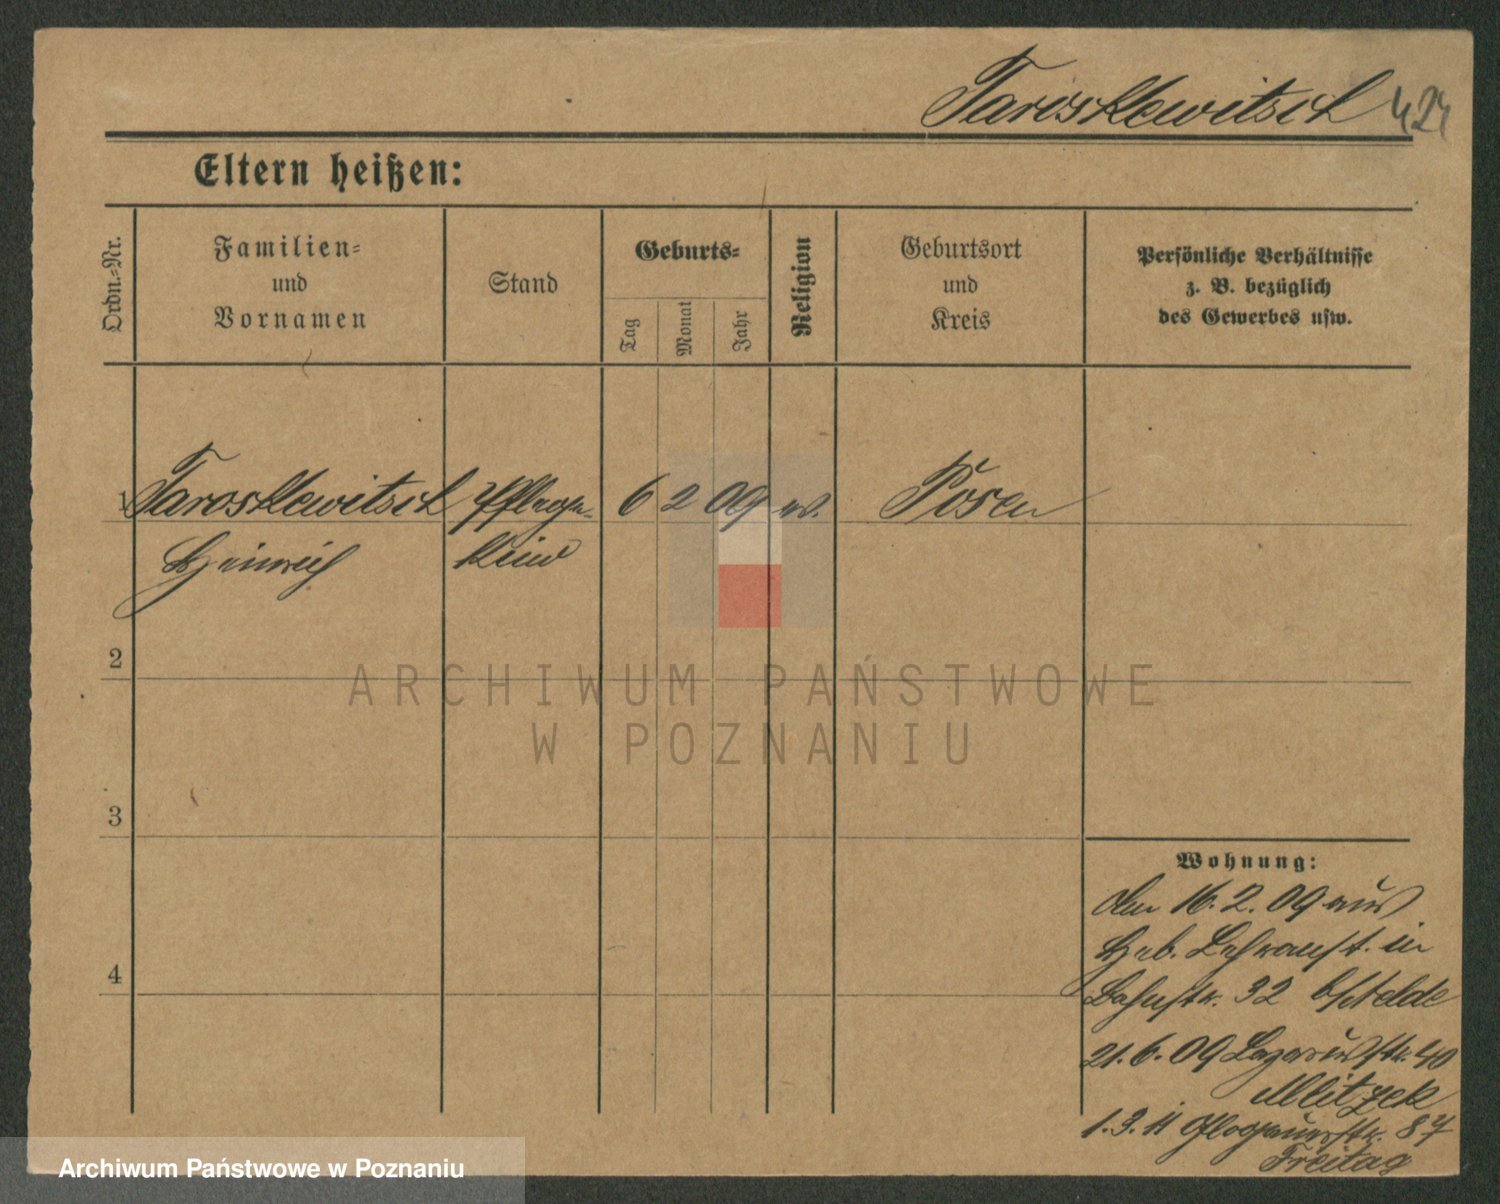 Taroszkewitsch 424
Eltern heißen:
Ordn.-Nr.
Familien-
und
Vornamen
Stand
Geburts-
Tag
Monat
Jahr
Religion
Geburtsort
und
Kreis
Persönliche Verhältnisse
z. B. bezüglich
des Gewerbes usw.
1 Taroszkewitsch Pflege- 6 2 09 ev. Posen
Heinrich kind
2
3
4
Wohnung:
den 16. 2. 09 aus
Heb. Lehranst. in
Bahnstr. 32
21. 6. 09 Lazarusstr. 40
Mlitzek
1. 3. 11 Glogauerstr. 87
Freitag
ARCHIWUM PAŃSTWOWE
W POZNANIU
Archiwum Państwowe w Poznaniu